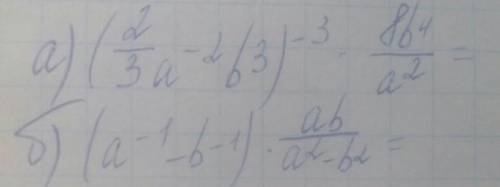 а) (2/3 a⁻² b³)⁻³ · 8b⁴/a² =
б) (a⁻¹ - b⁻¹) · ab/a² - b² =